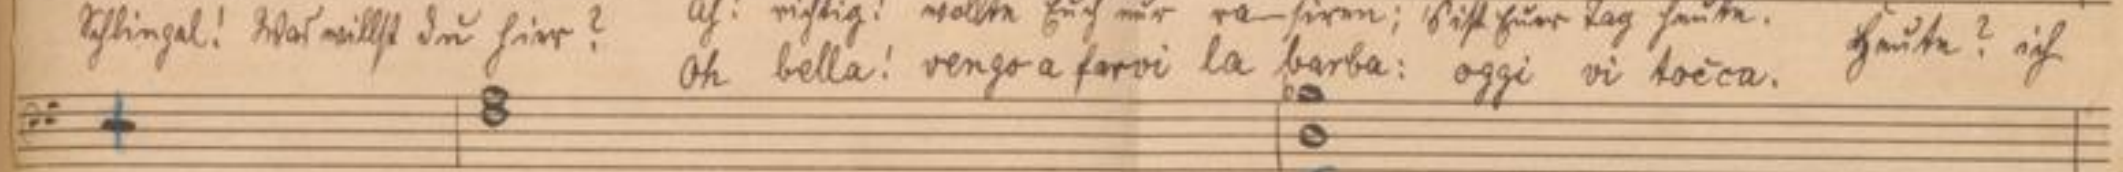 Schlingel! Was willst du hier? Ah! richtig! wollte Euch nur rasiren; 's ist Euer Tag heute. Heute? ich
Oh bella! vengo a farvi la barba: oggi vi tocca.